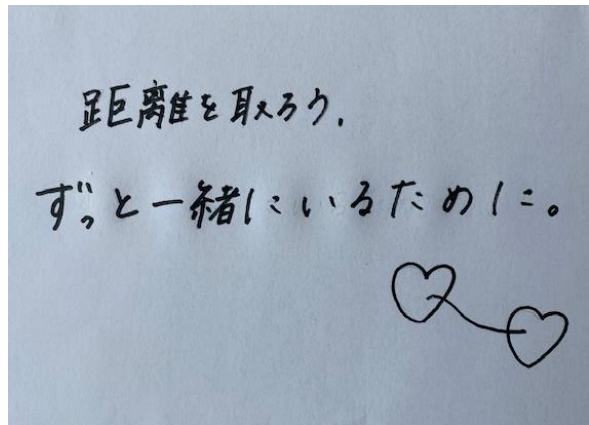 距離を取ろう.
ずっと一緒にいるために。